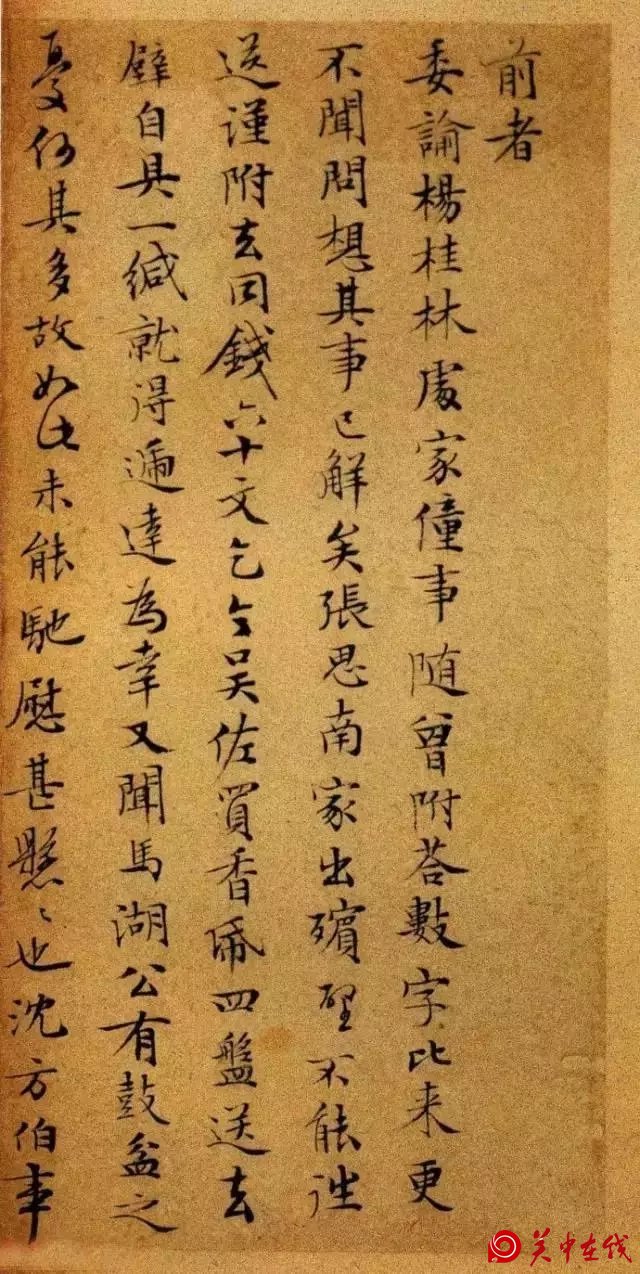 前者
委論楊桂林處家僮事随曾附荅數字比来更
不聞問想其事已解矣張思南家出殯壁不能往
送謹附去同錢六十文乞令吴佐買香帋四盤送去
壁自具一緘就得逓達為幸又聞馬湖公有鼓盆之
憂何其多故如此未能馳慰甚懸〻也沈方伯事
关中在线